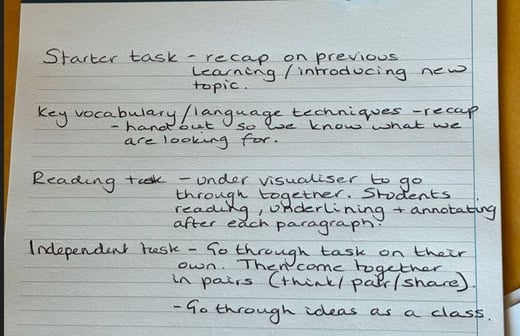 Starter task - recap on previous
learning/introducing new
topic.
Key vocabulary/language techniques - recap
- hand out so we know what we
are looking for.
Reading task - under visualiser to go
through together. Students
reading, underlining + annotating
after each paragraph.
Independent task - Go through task on their
own. Then come together
in pairs (think/pair/share).
- Go through ideas as a class.